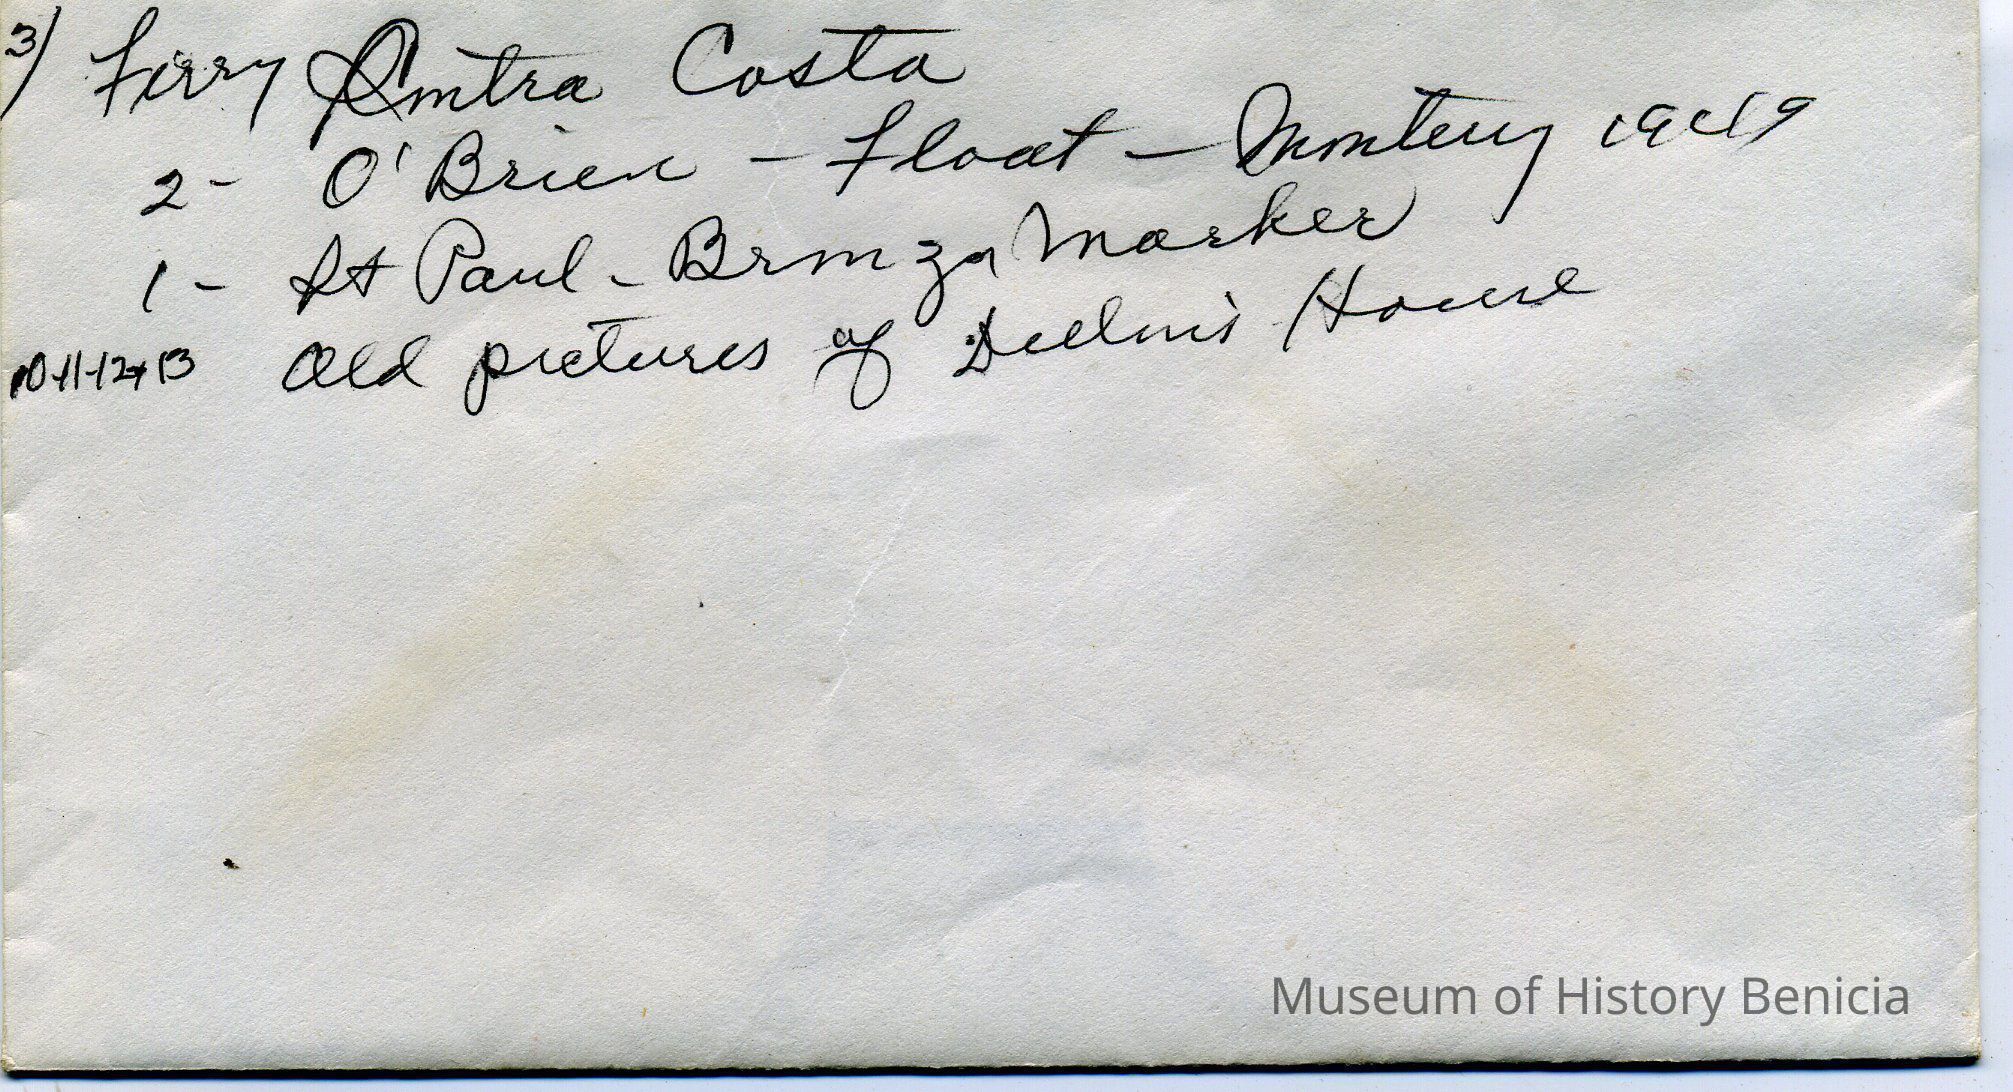 3) Ferry Contra Costa
2- O'Brien - Float - Montery 1949
1- St Paul - Bronze Marker
10-11-12+13 Old pictures of House
Museum of History Benicia